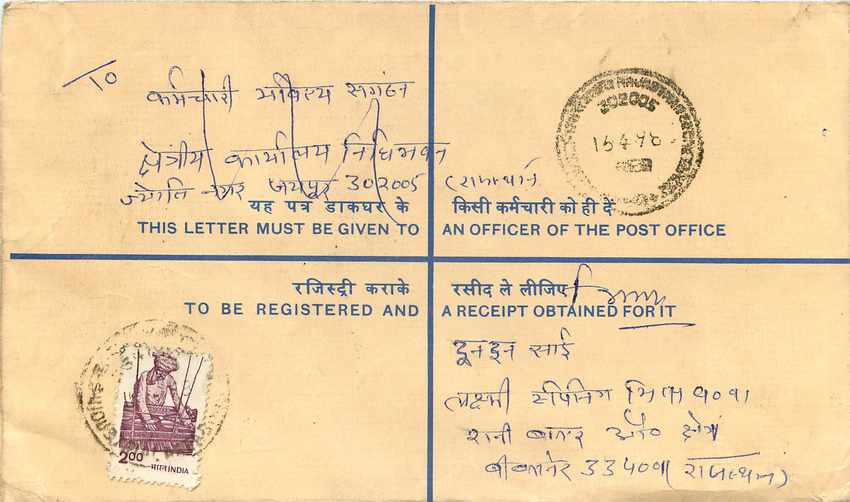 To
कर्मचारी भविष्य सगंठन
क्षेत्रीय कार्यालय निधिभवन
ज्योति नगर जयपुर 302005 (राजस्थान)
यह पत्र डाकघर के किसी कर्मचारी को ही दें
THIS LETTER MUST BE GIVEN TO AN OFFICER OF THE POST OFFICE
302005
रजिस्ट्री कराके रसीद ले लीजिए
TO BE REGISTERED AND A RECEIPT OBTAINED FOR IT
From
साई
लक्ष्मी स्पिनिंग
रानी बाजार औ० क्षेत्र
बीकानेर 334001 (राजस्थान)
2.00 भारत INDIA